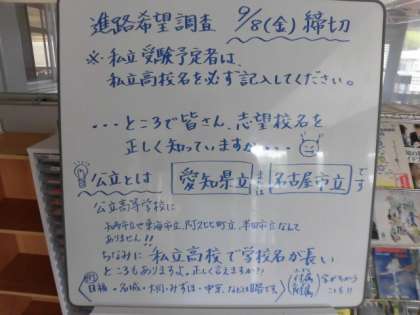 進路希望調査 9/8(金) 締切
※私立受験予定者は、
私立高校名を必ず記入してください。
・・・ところで皆さん、志望校名を
正しく知っていますか・・・
公立とは 愛知県立 または 名古屋市立 です
公立高等学校に
大府市立や東海市立、阿久比町立、半田市立なんて
ありません!!
ちなみに 私立高校で学校名が長い
ところもありますよ。正しく言えますか?!
日福・名城・大同・みずほ・中京、などは略称です
付属 附属 字がちがう